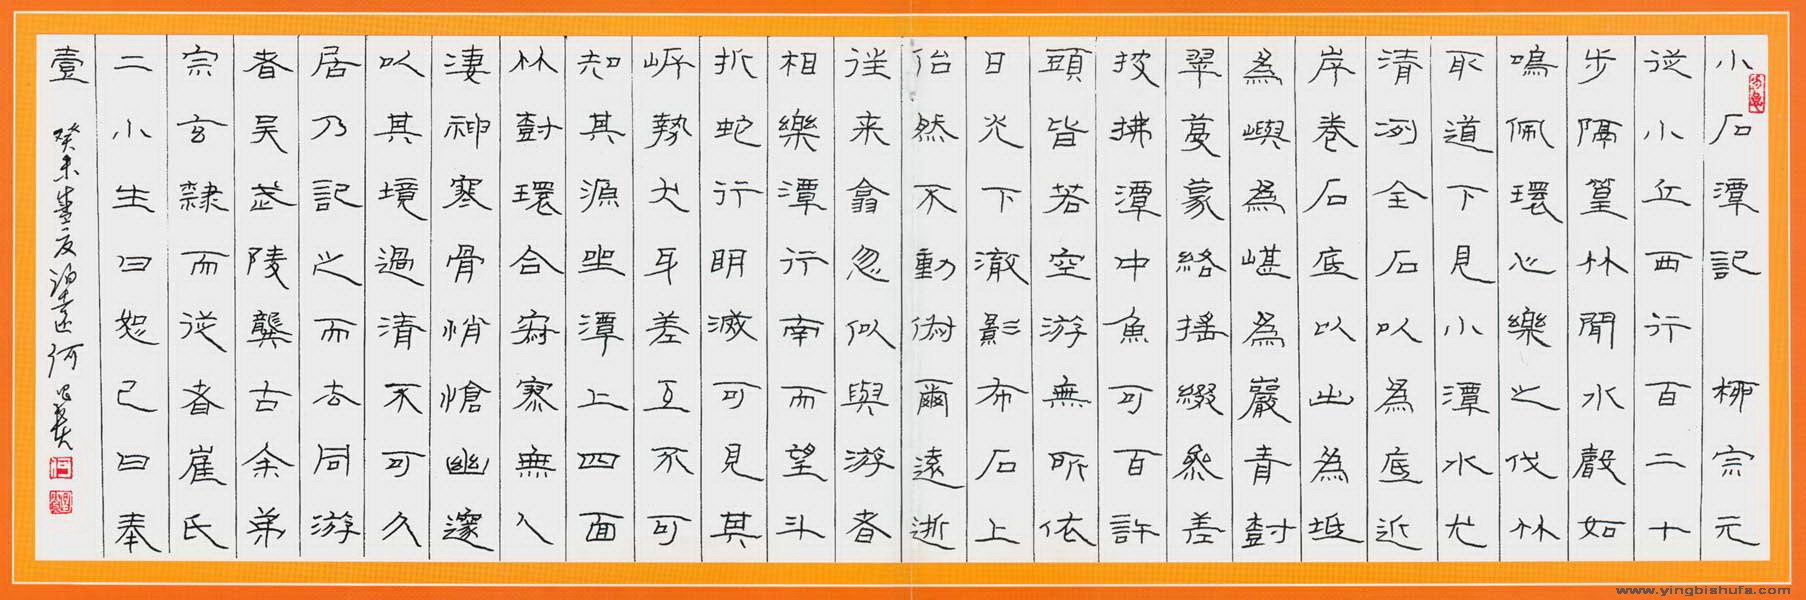 小石潭記 柳宗元
從小丘西行百二十
步隔篁竹聞水聲如
鳴佩環心樂之伐竹
取道下見小潭水尤
清冽全石以為底近
岸卷石底以出為坻
為嶼為嵁為巖青樹
翠蔓蒙絡搖綴參差
披拂潭中魚可百許
頭皆若空游無所依
日光下澈影布石上
佁然不動俶爾遠逝
往来翕忽似與游者
相樂潭行南而望斗
折蛇行明滅可見其
岸勢犬牙差互不可
知其源坐潭上四面
竹樹環合寂寥無人
凄神寒骨悄愴幽邃
以其境過清不可久
居乃記之而去同游
者吴武陵龔古余弟
宗玄隸而從者崔氏
二小生曰恕己曰奉
壹 癸未 何
www.yingbishufa.com